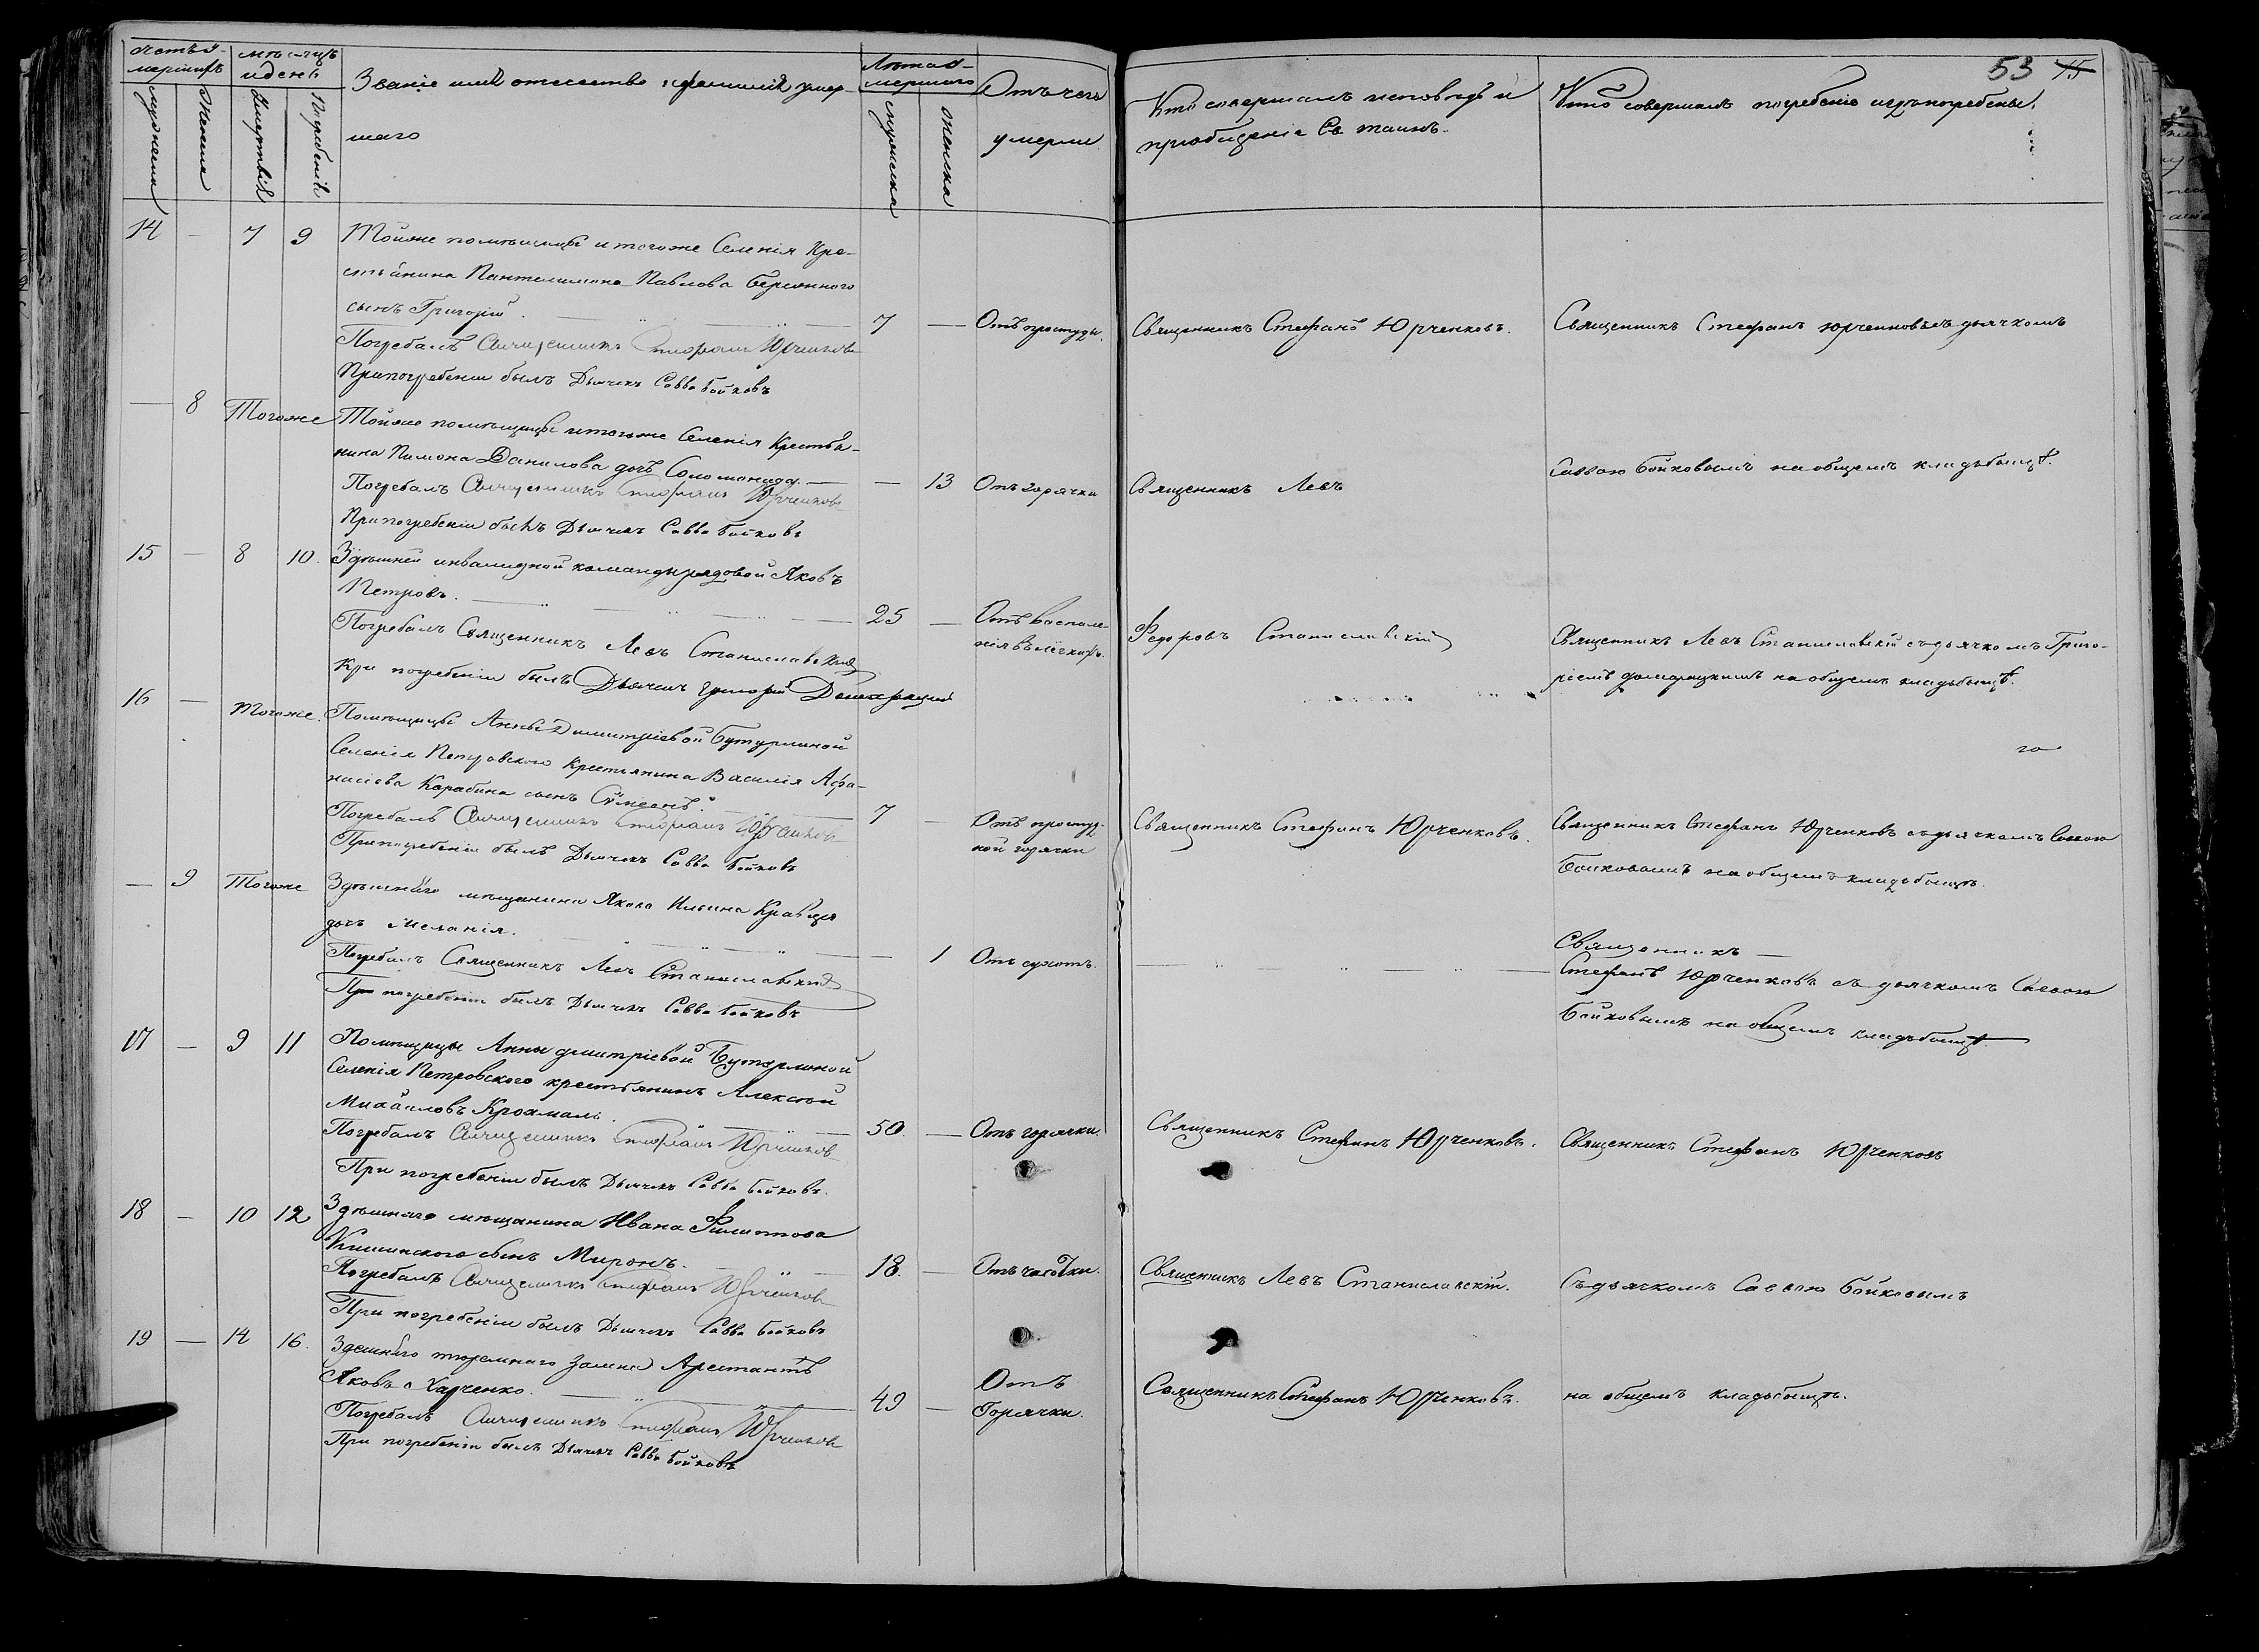 53 15
Счетъ у-
мершихъ
мѣсяцъ
и день
Званіе имя отечество и фамилія умер-
шаго
Лѣта у-
мершаго
Отъ чего
умерли
Кто совершалъ исповѣдь и
пріобщеніе Св. таинъ.
Кто совершилъ погребеніе и гдѣ погребены.
мужеска
женска
Смерть
Погребенія
мужеска
женска
14 — 7 9 Тойже помѣщицы и тогоже Селенія Кре-
стьянина Пантелимона Павлова Березнного
сынъ Григорій. 7 — Отъ простуды. Священникъ Стефанъ Юрченковъ. Священникъ Стефанъ Юрченковъ съ дьячкомъ
Погребалъ Священникъ Стефанъ Юрченковъ
При погребеніи былъ Дьячекъ Савва Бойковъ
— 8 Тогоже Тойже помѣщицы и тогоже Селенія Крестья-
нина Пимона Данилова дочь Соломонида — — 13 Отъ горячки Священникъ Левъ Саввою Бойковымъ на общемъ кладьбищѣ.
Погребалъ Священникъ Стефанъ Юрченковъ
При погребеніи былъ Дьячекъ Савва Бойковъ
15 — 8 10. Здѣшней инвалидной команды рядовой Яковъ
Петровъ. 25 — Отъ воспале-
нія въ лёгкихъ. Федоровъ Станиславскій Священникъ Левъ Станиславскій съ дьячкомъ Григо-
ріемъ Домерецкимъ на общемъ кладьбищѣ.
Погребалъ Священникъ Левъ Станиславскій
При погребеніи былъ Дьячекъ Григорій
16 — Тогоже. Помѣщицы Анны Димитріевой Бутурлиной
го
Селенія Петровского Крестьянина Василія Афа-
насіева Карабина сынъ Сѵмеонъ. 7 — Отъ простуд-
ной горячки Священникъ Стефанъ Юрченковъ. Священникъ Стефанъ Юрченковъ съ дьячкомъ Саввою
Бойковымъ на общемъ кладьбищѣ.
Погребалъ Священникъ Стефанъ Юрченковъ
При погребеніи былъ Дьячекъ Савва Бойковъ
— 9 Тогоже Здѣшняго мѣщанина Якова Ильина Кравца
дочь Меланія. — 1 Отъ сухотъ. — Священникъ —
Стефанъ Юрченковъ съ дьячкомъ Саввою
Бойковымъ на общемъ кладьбищѣ.
Погребалъ Священникъ Левъ Станиславскій
При погребеніи былъ Дьячекъ Савва Бойковъ
17 — 9 11 Помѣщицы Анны Дмитріевой Бутурлиной
Селенія Петровского крестьянинъ Алексѣй
Михайловъ Крохмаль. 50. — Отъ горячки. Священникъ Стефанъ Юрченковъ. Священникъ Стефанъ Юрченковъ
Погребалъ Священникъ Стефанъ Юрченковъ
При погребеніи былъ Дьячекъ Савва Бойковъ.
18 — 10 12 Здѣшняго мѣщанина Ивана Филипова
Кишинского сынъ Миронъ. 18. — Отъ чахотки. Священникъ Левъ Станиславскій. Съ дьячкомъ Саввою Бойковымъ
Погребалъ Священникъ Стефанъ Юрченковъ
При погребеніи былъ Дьячекъ Савва Бойковъ
19 — 14 16. Здешняго тюремнаго Замка Арестантъ
Яковъ Харченко. 49 — Отъ
Горячки. Священникъ Стефанъ Юрченковъ. на общемъ кладьбищѣ.
Погребалъ Священникъ Стефанъ Юрченковъ
При погребеніи былъ Дьячекъ Савва Бойковъ